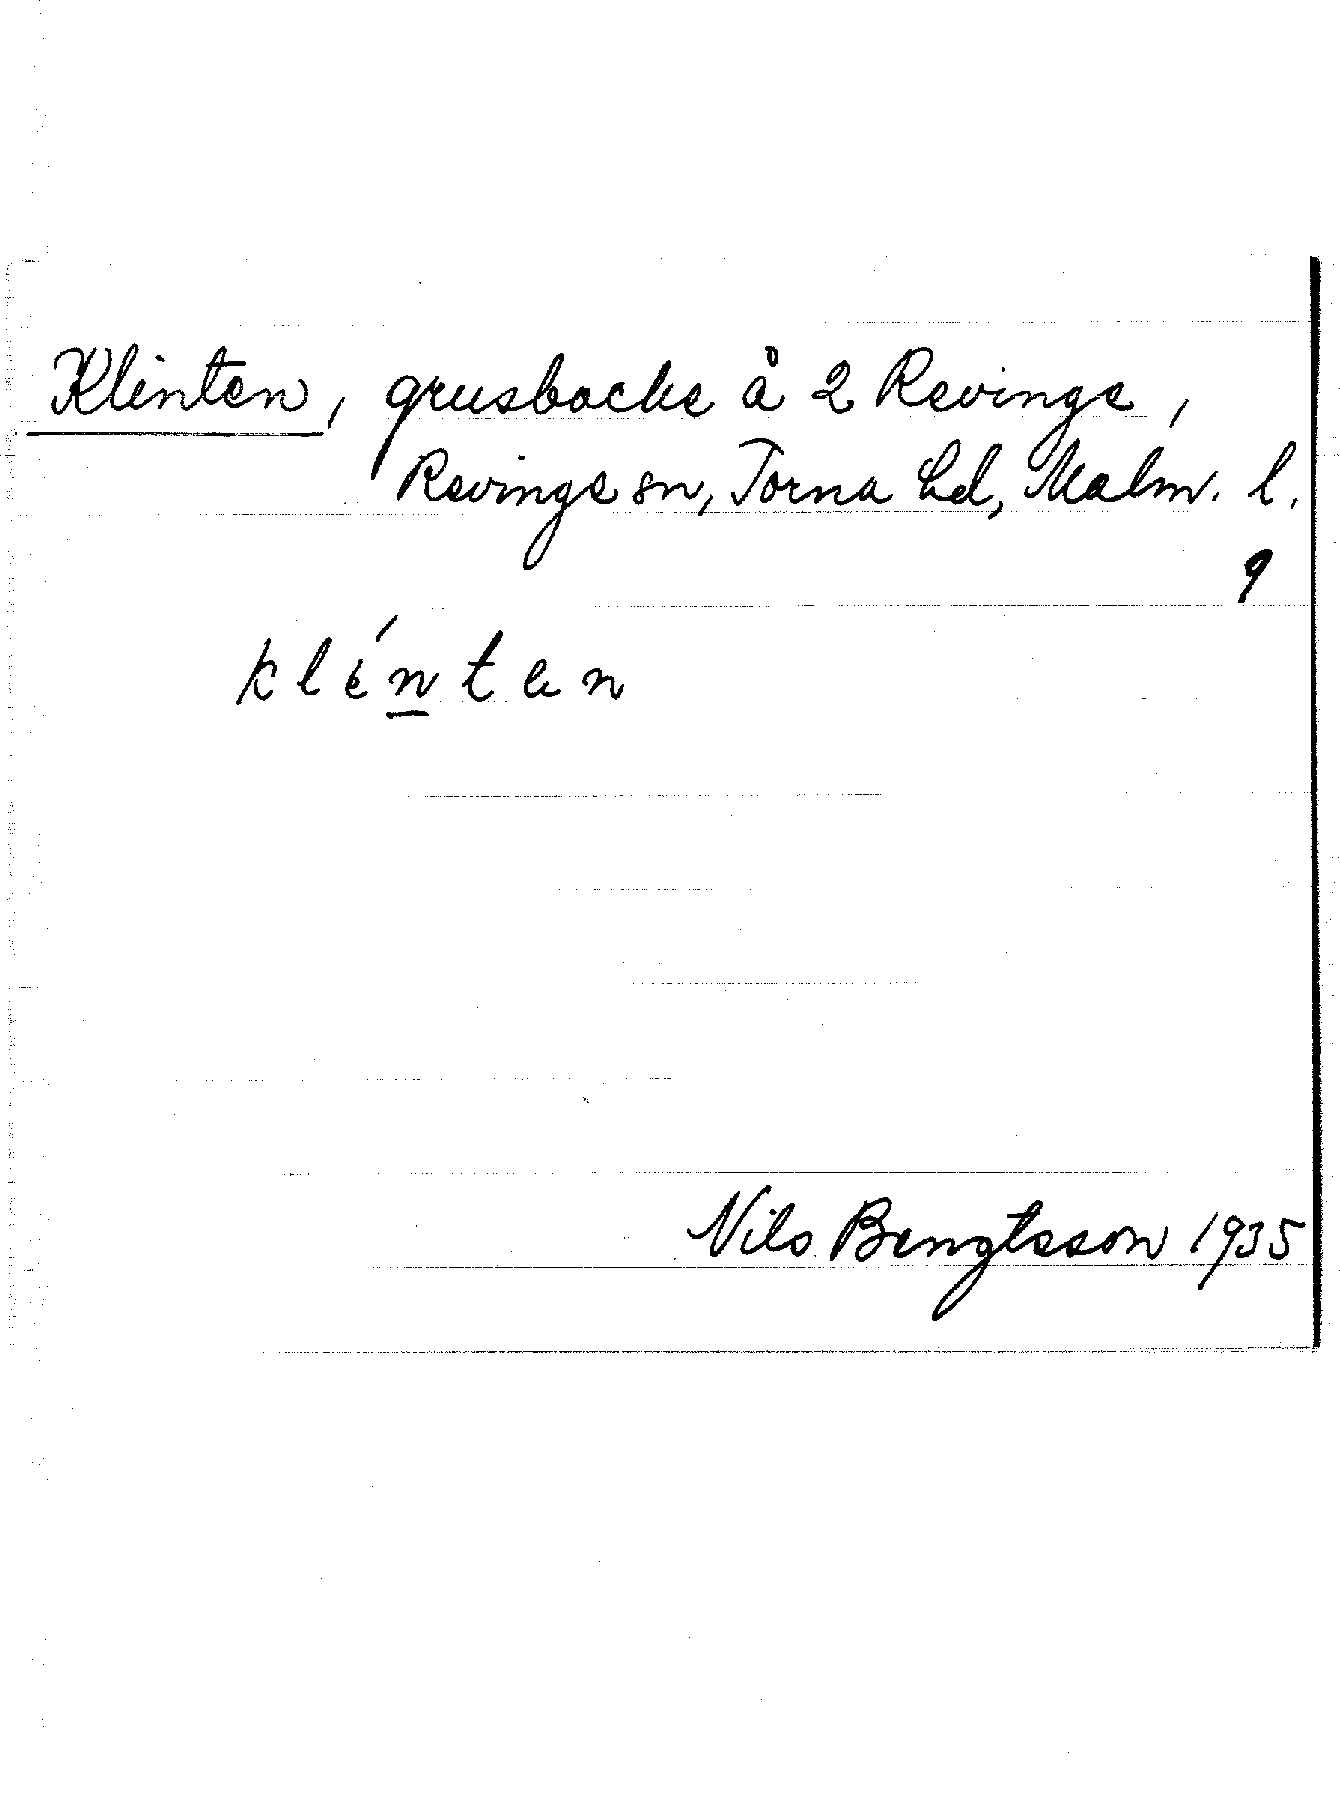 Klinten, grusbacke å 2 Revinge,
Revinge sn, Torna hd, Malm. l.
9
klénten
Nils Bengtsson 1935